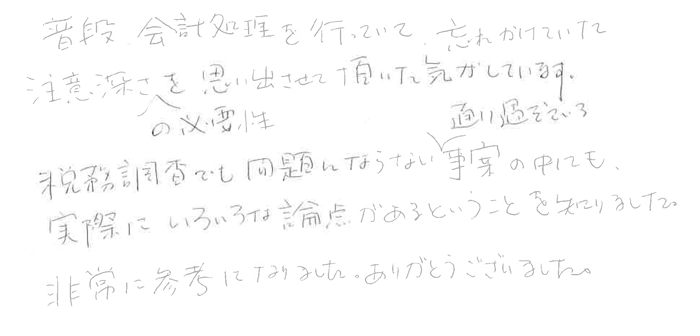 普段、会計処理を行っていて、忘れかけていた
注意深さを思い出させて頂いた気がしています。
の必要性
通り過ぎている
税務調査でも問題にならない事案の中にも、
実際にいろいろな論点があるということを知りました。
非常に参考になりました。ありがとうございました。